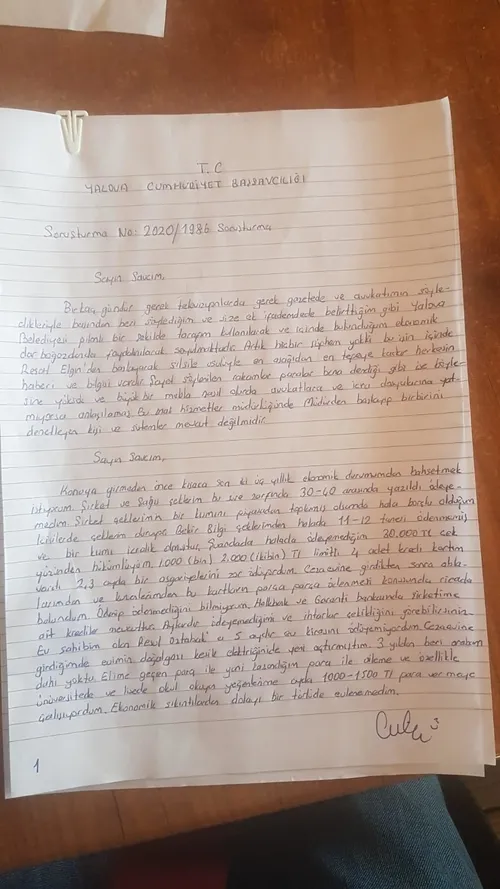 T.C
YALOVA CUMHURİYET BAŞSAVCILIĞI
Soruşturma No: 2020/1986 Soruşturma
Sayın Savcım,
Birkaç gündür gerek televizyonlarda gerek gazetede ve avukatımın söyle-
dikleriyle başından beri söylediğim ve size ek ifademde belirttiğim gibi Yalova
Belediyesi planlı bir şekilde tarafım kullanılarak ve içinde bulunduğum ekonomik
dar boğazından faydalanılarak soyulmaktadır. Artık hiçbir şüphem yokki bu işin içinde
Resat Elgin'den başlayarak silsile usulüyle en aşağıdan en tepeye kadar herkesin
haberi ve bilgisi vardır. Şayet söylenilen rakamlar paralar bana dendiği gibi ise böyle-
sine yüksek ve büyük bir miktar nasıl olurda avukatlara ve icra dosyalarına yat-
mıyorsa anlaşılamaz. Bu mali hizmetler müdürlüğünde Müdürden başlayıp birbirini
denetleyen kişi ve sistemler mevcut değilmidir.
Sayın Savcım,
Konuya girmeden önce kısaca son iki üç yıllık ekonomik durumumdan bahsetmek
istiyorum. Şirket ve Şahsi çeklerim bu süre zarfında 30-40 arasında yazıldı ödeye-
medim. Şirket çeklerimin bir kısmını piyasadan toplamış olsamda hala borçlu olduğum
kişilerde çeklerim duruyor. Bekir Bilgi çeklerimden halada 11-12 tanesi ödenmemiş
ve bir kısmı icralık olmuştur. Şuandada halada ödeyemediğim 30.000 TL çek
yüzünden hükümlüyüm. 1.000 (bin) 2.000 (ikibin) TL limitli 4 adet kredi kartım
vardı. 2,3 ayda bir asgarilerini zor ödüyordum. Cezaevine girdikten sonra abla-
larımdan ve kuzenlerimden bu kartların parça parça ödenmesi konusunda ricada
bulundum. Ödenip ödenmediğini bilmiyorum. Halkbank ve Garanti bankasında şirketime
ait krediler mevcuttur. Aylardır ödeyemediğimi ve ihtarlar çekildiğini görebilirsiniz.
Ev sahibim olan Resul Ortabak'a 5 aydır ev kirasını ödeyemiyordum. Cezaevine
girdiğimde evimin doğalgazı kesik elektriğinide yeni açtırmıştım. 3 yıldan beri arabam
dahi yoktu. Elime geçen para ile yani kazandığım para ile aileme ve özellikle
üniversitede ve lisede okul okuyan yeğenlerime ayda 1000-1500 Tl para vermeye
çalışıyordum. Ekonomik sıkıntılardan dolayı bir türlüde evlenemedim.
1